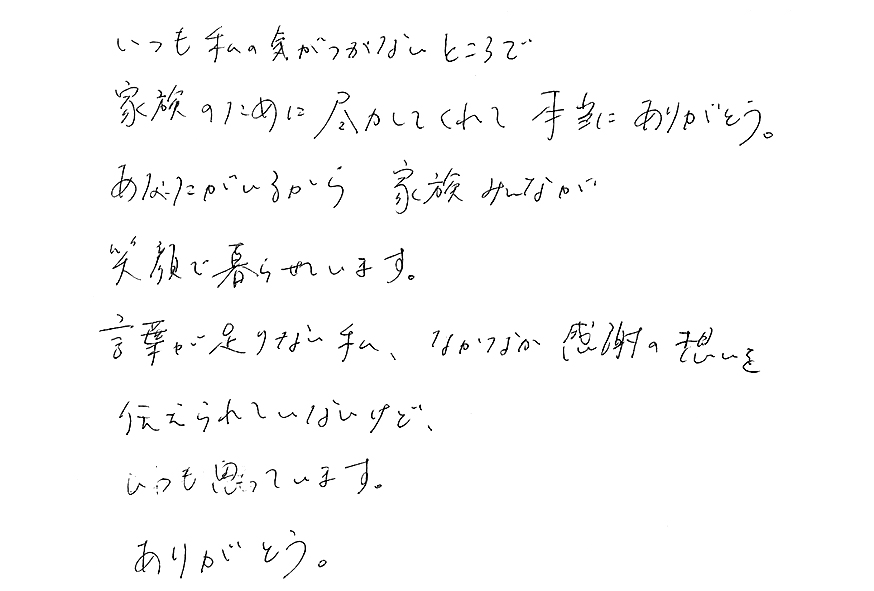 いつも私の気がつかないところで
家族のために尽力してくれて 本当に ありがとう。
あなたがいるから 家族みんなが
笑顔で暮らせています。
言葉が足りない私、なかなか感謝の想いを
伝えられていないけど、
いつも思っています。
ありがとう。